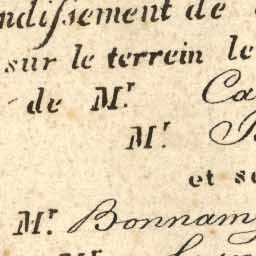 ndissement de
sur le terrein le
de Mr. Ca
Mr. B
et se
Mr. Bonnam
Mr.